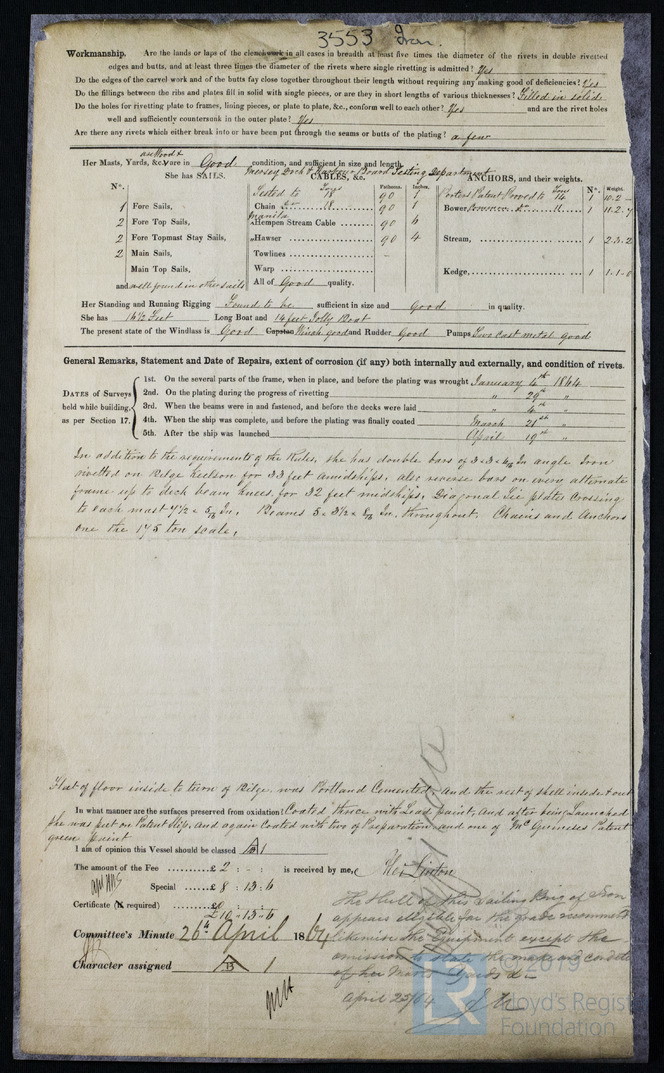 3553 Iron.
Workmanship. Are the lands or laps of the clenchwork in all cases in breadth at least five times the diameter of the rivets in double rivetted
edges and butts, and at least three times the diameter of the rivets where single rivetting is admitted? Yes
Do the edges of the carvel work and of the butts fay close together throughout their length without requiring any making good of deficiencies? Yes
Do the fillings between the ribs and plates fill in solid with single pieces, or are they in short lengths of various thicknesses? Filled in solid
Do the holes for rivetting plate to frames, lining pieces, or plate to plate, &c., conform well to each other? Yes and are the rivet holes
well and sufficiently countersunk in the outer plate? Yes
Are there any rivets which either break into or have been put through the seams or butts of the plating? a few
are Wood &
Her Masts, Yards, &c., are in Good condition, and sufficient in size and length.
Mersey Dock & Harbour Board Testing Department
She has SAILS. CABLES, &c. ANCHORS, and their weights.
N°. Fathoms. Inches. N°. Weight.
Tested to Tons 18 90 1 Porters Patent Proved to Tons 14 1 10.2
1 Fore Sails, Chain Do 18 90 1 Bower, Common Do 11 1 11.2.7
2 Fore Top Sails, Manila Hempen Stream Cable 90 6
2 Fore Topmast Stay Sails, Hawser 90 4 Stream, 1 2.3.2
2 Main Sails, Towlines
Main Top Sails, Warp Kedge, 1 1.1.0
and well found in other sails All of Good quality.
Her Standing and Running Rigging Found to be sufficient in size and Good in quality.
She has 16½ Feet Long Boat and 14 feet Jolly Boat
The present state of the Windlass is Good Capstan Winch good and Rudder Good Pumps Two cast metal good
General Remarks, Statement and Date of Repairs, extent of corrosion (if any) both internally and externally, and condition of rivets.
DATES of Surveys held while building, as per Section 17.
1st. On the several parts of the frame, when in place, and before the plating was wrought January 4th 1864
2nd. On the plating during the progress of rivetting " 29th "
3rd. When the beams were in and fastened, and before the decks were laid " 4th "
4th. When the ship was complete, and before the plating was finally coated March 21st "
5th. After the ship was launched April 19th "
In addition to the requirements of the Rules, she has double bars of 3 x 3 x 6/16 In angle Iron
rivetted on Bilge Keelson for 33 feet amidships, also reverse bars on every alternate
frame up to deck beam knees for 32 feet midships, Diagonal Tie plates crossing
to each mast 7½ x 5/16 In. Beams 5 x 3½ x 6/16 In. throughout. Chains and Anchors
one the 175 ton scale,
Flat of floor inside to turn of Bilge, was Portland Cemented, and the rest of shell inside & out
In what manner are the surfaces preserved from oxidation? Coated thrice with Lead paint, And after being Launched
she was put on Patent Slip, And again Coated with two of Preparation, and one of McGuinness Patent
green paint
I am of opinion this Vessel should be classed A 1
The amount of the Fee ........£ 2 : - : is received by me,
Special .....£ 8 : 13 : 6
Certificate (if required) ....£0
£10 : 13 : 6
Committee's Minute 26th April 1864
Character assigned B 1
The Hull of this Sailing Brig of Iron
appears eligible for the grade recommend
likewise the Equipment except the
omission to state the make and condition
of her Masts Yards &c
April 25/64
© 2019
Lloyd's Register
Foundation